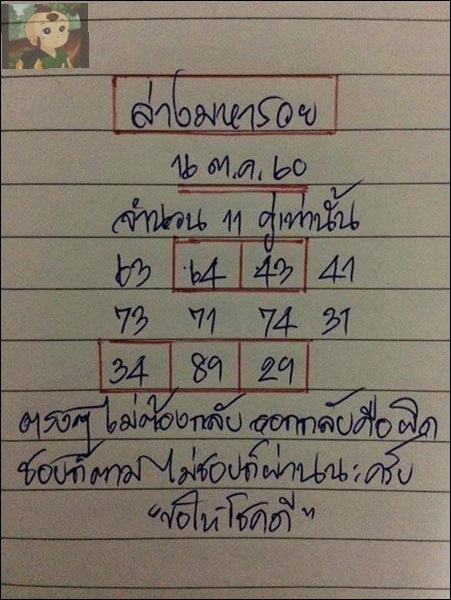 ล่างมหารวย
๑๖ ต.ค. ๖๐
จำนวน 11 คู่เท่านั้น
63 64 43 41
73 71 74 31
34 89 29
ตรงๆ ไม่ต้องกลับ ออกกลับคือผิด
ชอบก็ตาม ไม่ชอบก็ผ่านนะครับ
"ขอให้โชคดี"